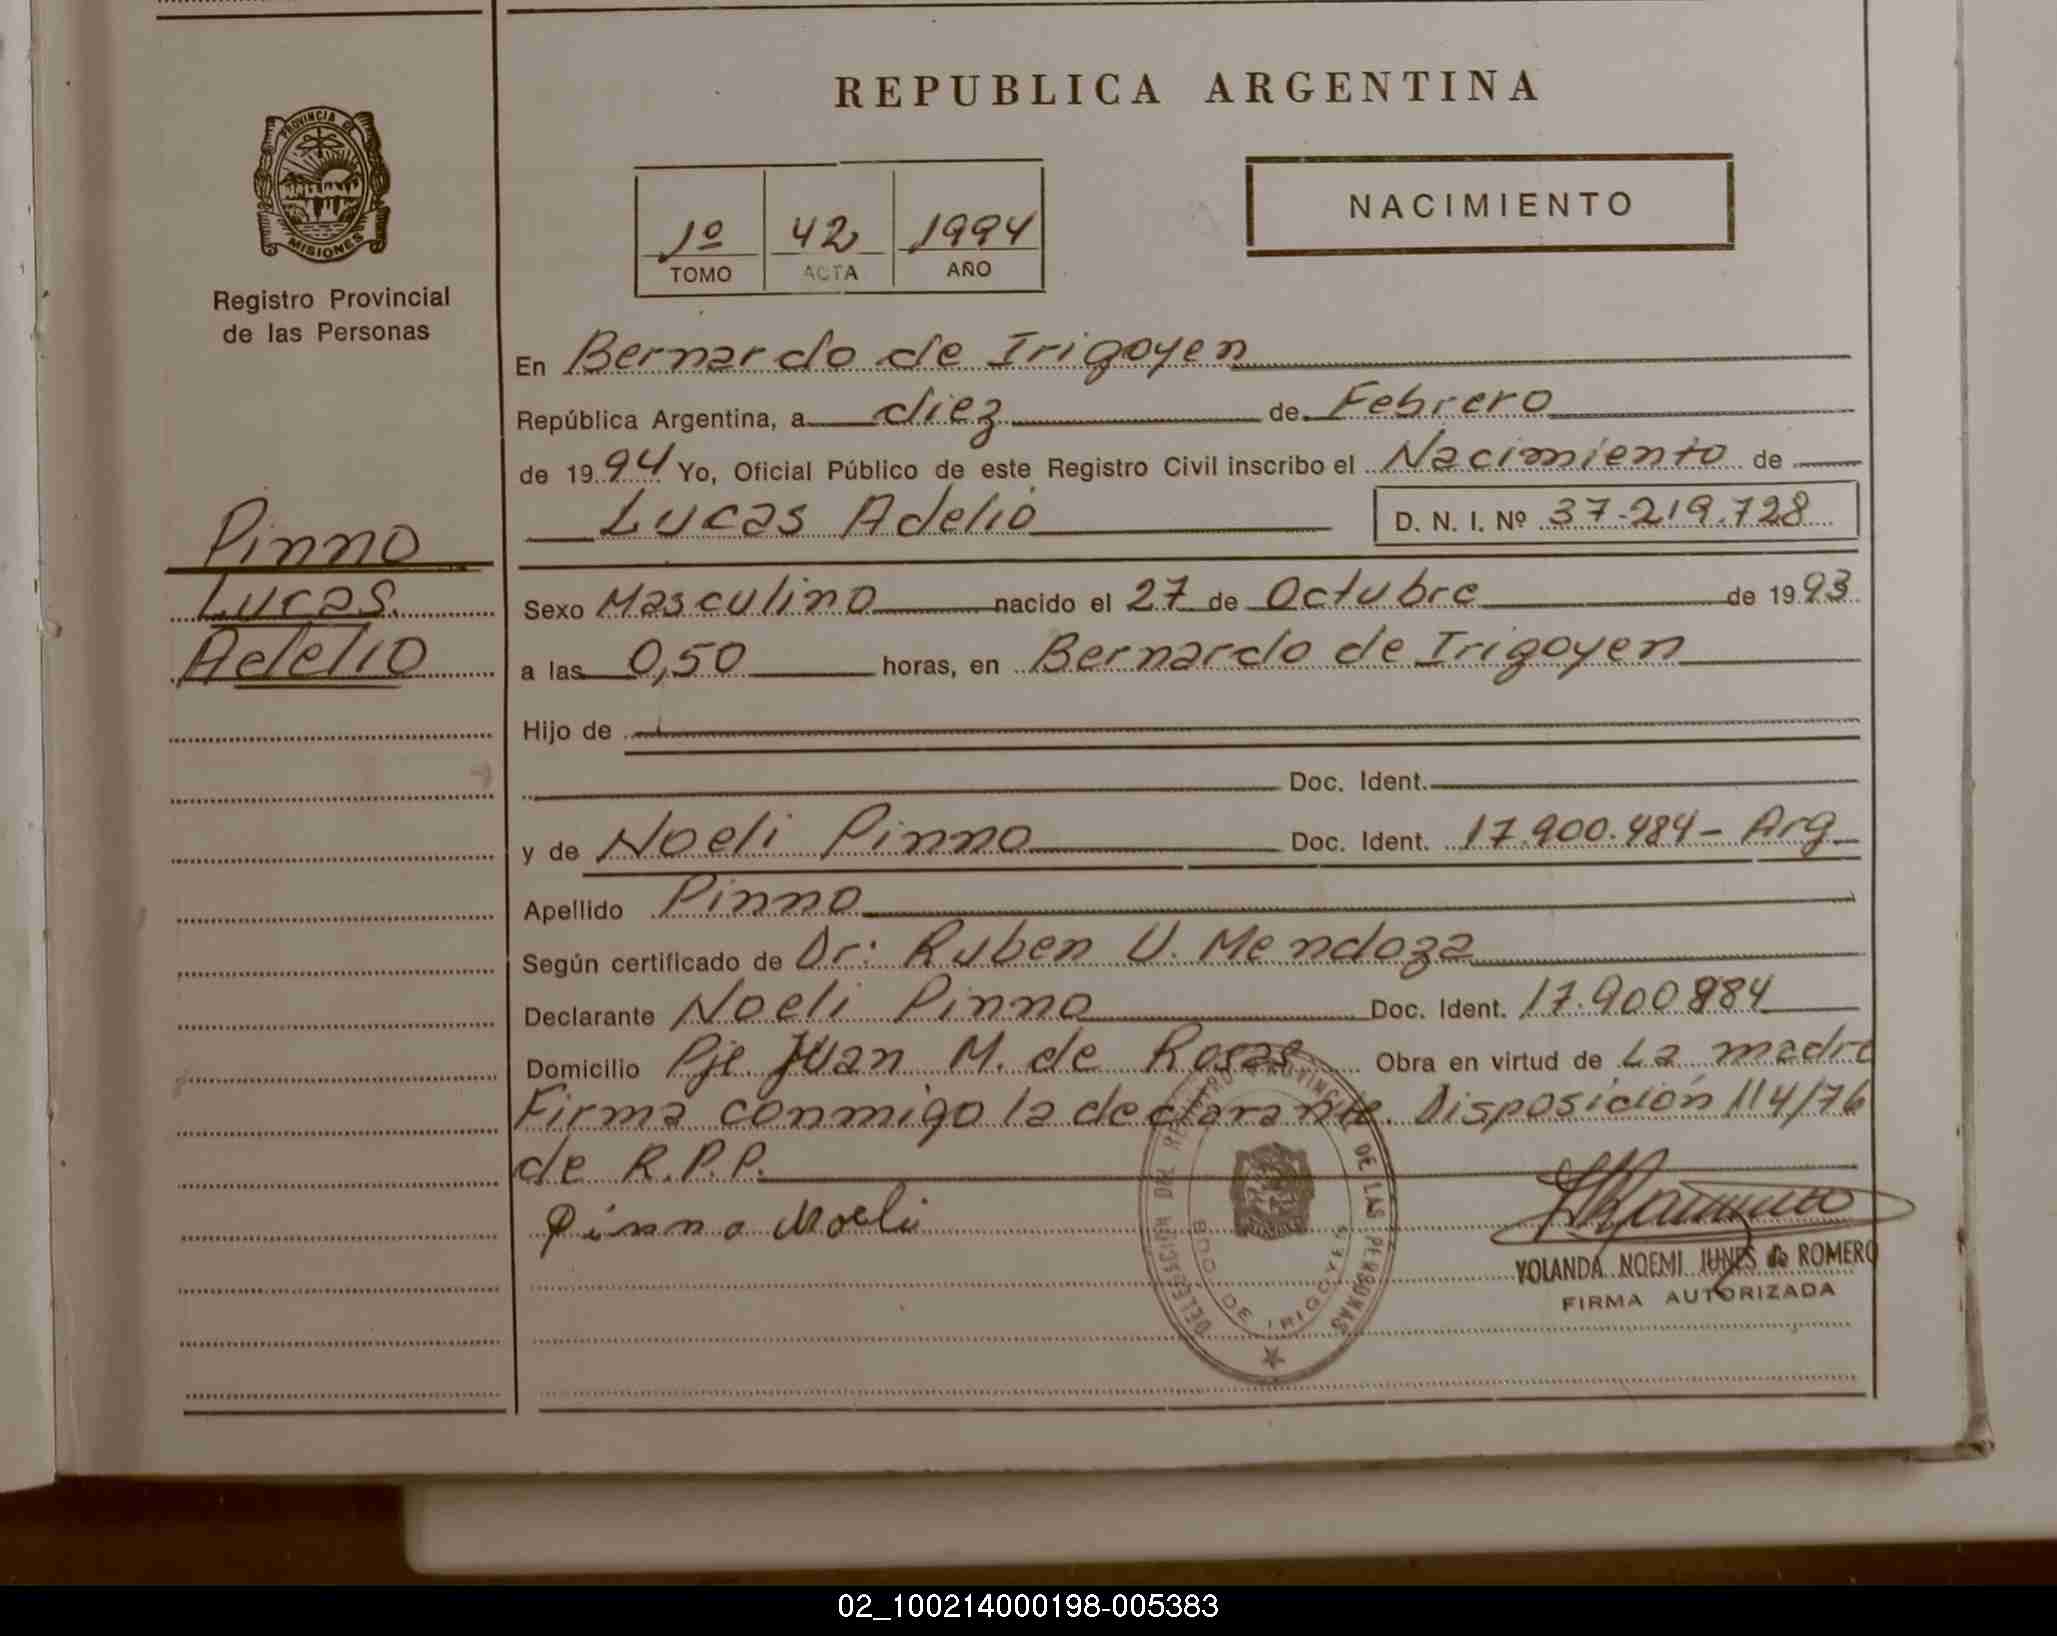 REPUBLICA ARGENTINA
PROVINCIA DE
MISIONES
Registro Provincial
de las Personas
1º 42 1994
TOMO ACTA AÑO
NACIMIENTO
En Bernardo de Irigoyen
República Argentina, a diez de Febrero
de 1994 Yo, Oficial Público de este Registro Civil inscribo el Nacimiento de
Lucas Adelio D. N. I. Nº 37.219.728
Pinno
Lucas
Adelio
Sexo Masculino nacido el 27 de Octubre de 1993
a las 0,50 horas, en Bernardo de Irigoyen
Hijo de
Doc. Ident.
y de Noeli Pinno Doc. Ident. 17.900.484 - Arg
Apellido Pinno
Según certificado de Dr: Ruben U. Mendoza
Declarante Noeli Pinno Doc. Ident. 17.900984
Domicilio Pje Juan M. de Rosas Obra en virtud de La madre
Firma conmigo la declarante. Disposición 114/76
de R.P.P.
Pinno Noeli
DELEGACION DEL REGISTRO PROVINCIAL DE LAS PERSONAS
BDO. DE IRIGOYEN
YOLANDA NOEMI IUNES de ROMERO
FIRMA AUTORIZADA
02_100214000198-005383